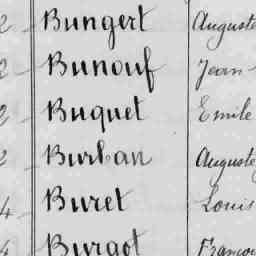 2 Bungert Auguste
2 Bunouf Jean
2 Buquet Emile
2 Burban Auguste
4 Buret Louis
4 Burgot François